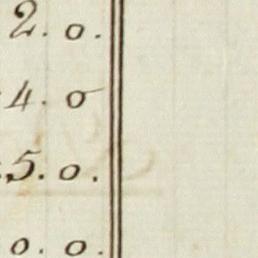 2. 0.
4. 0
5. 0.
0. 0.